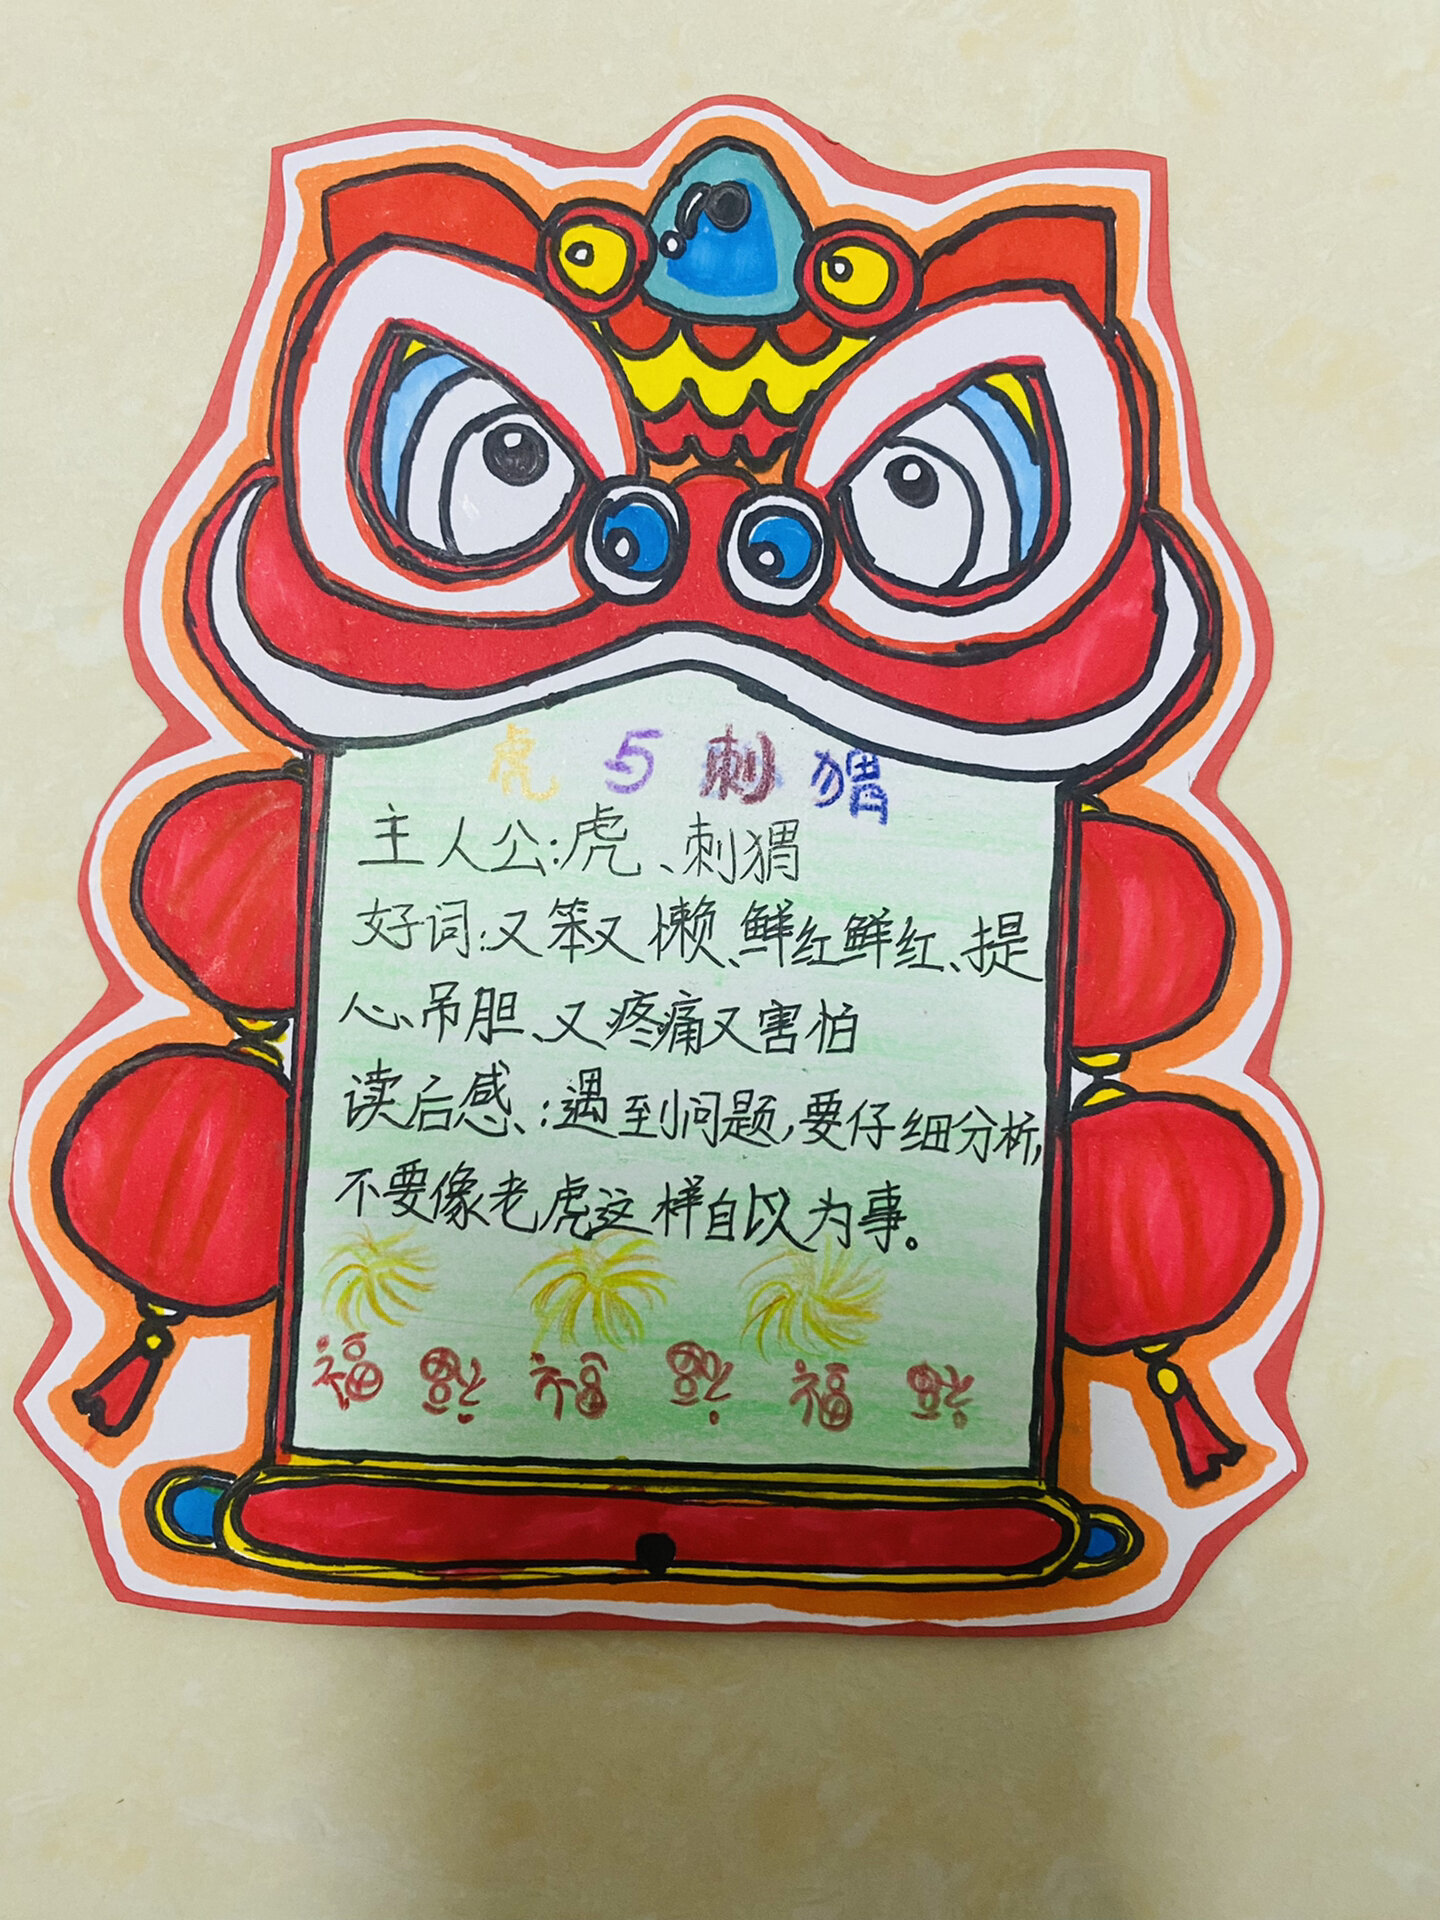 虎与刺猬
主人公:虎、刺猬
好词:又笨又懒、鲜红鲜红、提
心、吊胆、又疼痛又害怕
读后感、:遇到问题,要仔细分析,
不要像老虎这样自以为事。
福 福 福 福 福 福